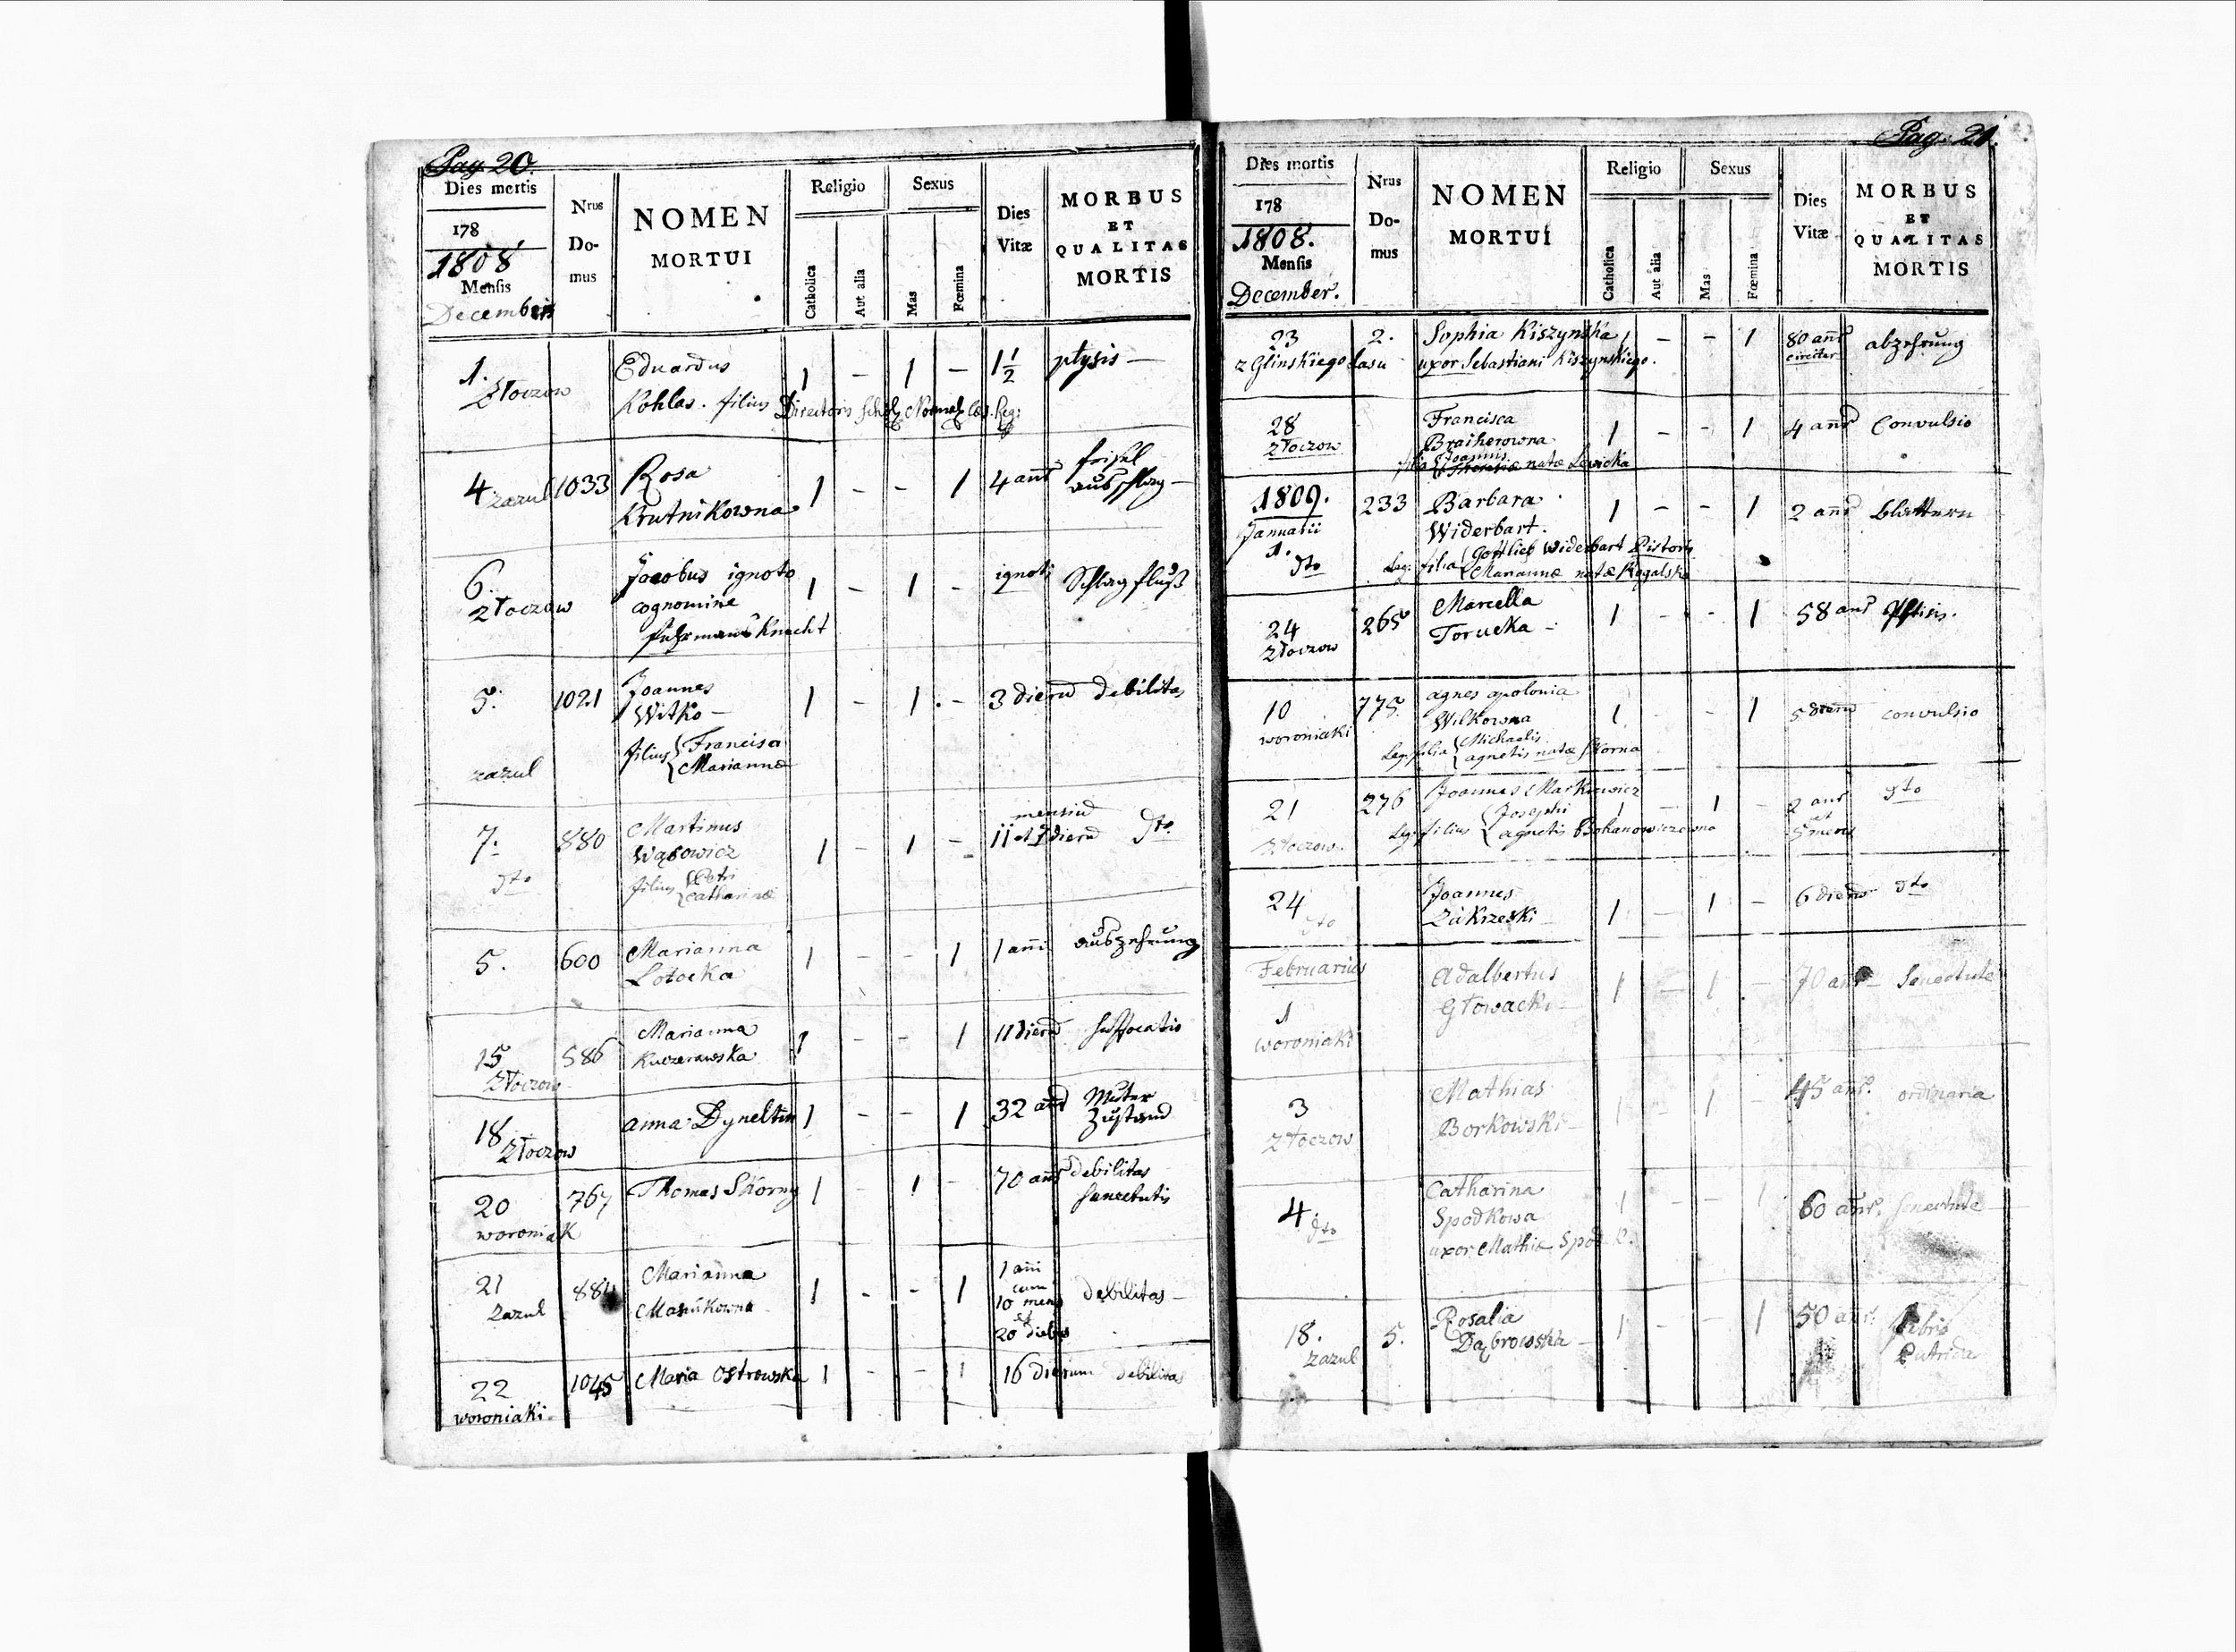 Pag. 20.
Dies mortis
178
1808
Mensis
December
Nrus
Do-
mus
NOMEN
MORTUI
Religio
Catholica
Aut alia
Sexus
Mas
Fœmina
Dies
Vitæ
MORBUS
ET
QUALITAS
MORTIS
1. Eduardus 1 – 1 – 1 1/2 ptysis –
Złoczow Kohlas. filius Directoris Schol Normal Cæs. Reg:
4 zazul 1033 Rosa 1 – – 1 4 annr frisel
Krutnikowna ausschlag –
6. Jacobus ignoto 1 – 1 – ignoti Schlag fluß
Złoczow cognomine
fuhrmans Knecht
5. 1021 Joannes 1 – 1 – 3 dierum debilitas
Witko –
filius Francisci
zazul Mariannæ
7. 880 Martinus 1 – 1 – mensium
Wąsowicz 11 et 7 dierum dto
dto filius Petri
Catharinæ
5. 600 Marianna 1 – – 1 1 anni auszehrung
Lotocka
15 586 Marianna 1 – – 1 11 dierum suffocatio
Złoczow Kuczerawska
18 anna Dyneltin 1 – – 1 32 annr Muter
Złoczow Zustand
20 767 Thomas Skorny 1 – 1 – 70 annr debilitas
woroniak senectutis
21 884 Marianna 1 – – 1 1 anni
Zazul Masiukowna cum
10 mens debilitas –
et
20 diebus
22 1045 Maria Ostrowska 1 – – 1 16 dierum debilitas
woroniaki.
Pag. 21.
Dies mortis
178
1808.
Mensis
December.
Nrus
Do-
mus
NOMEN
MORTUI
Religio
Catholica
Aut alia
Sexus
Mas
Fœmina
Dies
Vitæ
MORBUS
ET
QUALITAS
MORTIS
23 2. Sophia Kiszynska 1 – – 1 80 annr abzehrung
z Glinskiego Lasu uxor Sebastiani Kiszynskiego. circiter
28 Francisca 1 – – 1 4 annr Convulsio
Złoczow Braiherowna
filia Joannis
Theresiæ natæ Lewicka
1809. 233 Barbara 1 – – 1 2 annr blattern
Januarii Widerbart.
1. Leg: filia Gottlieb Widerbart Pistoris
dto Mariannæ natæ Rogalska
24 265 Marcella 1 – – 1 58 annr
Złoczow Torucka –
10 775 agnes apolonia 1 – – 1 5 dierum convulsio
woroniaki Wilkowna
Leg: filia Michaelis
agnetis natæ Skorna
21 276 Joannes Markiewicz 1 – 1 – 2 annr dto
Leg: filius Josephi et
Złoczow. agnetis Bohanowiczowna 5 mens
24 Joannes 1 – 1 – 6 dierum dto
dto Zakrzeski
Februarius Adalbertus 1 – 1 – 70 annr – Senectute
1 Głowacki –
woroniaki
3 Mathias 1 – 1 – 45 annr. ordinaria
Złoczow Borkowski –
4. Catharina 1 – – 1 60 annr. Senectute
dto Spodkowa
uxor Mathiæ
18. 5. Rosalia 1 – – 1 50 annr. febris
zazul Dąbrowska – Putrida